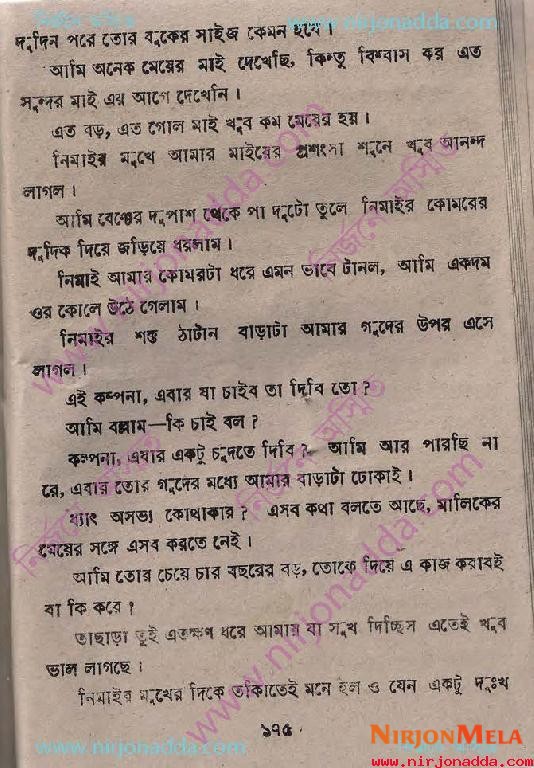 নির্জনে অস্মিত www.nirjonadda.com
দুদিন পরে তোর বুকের সাইজ কেমন হবে।
আমি অনেক মেয়ের মাই দেখেছি, কিন্তু বিশ্বাস কর এত
সুন্দর মাই এর আগে দেখেনি।
এত বড়, এত গোল মাই খুব কম মেয়ের হয়।
নিমাইর মুখে আমার মাইয়ের প্রশংসা শুনে খুব আনন্দ
লাগল।
আমি বেঞ্চের দুপাশ থেকে পা দুটো তুলে নিমাইর কোমরের
দুদিক দিয়ে জড়িয়ে ধরলাম।
নিমাই আমার কোমরটা ধরে এমন ভাবে টানল, আমি একদম
ওর কোলে উঠে গেলাম।
নিমাইর শক্ত ঠাটান বাড়াটা আমার গুদের উপর এসে
লাগল।
এই কল্পনা, এবার যা চাইব তা দিবি তো?
আমি বল্লাম—কি চাই বল?
কল্পনা, এবার একটু চুদতে দিবি? আমি আর পারছি না
রে, এবার তোর গুদের মধ্যে আমার বাড়াটা ঢোকাই।
ধ্যাৎ অসভ্য কোথাকার? এসব কথা বলতে আছে, মালিকের
মেয়ের সঙ্গে এসব করতে নেই।
আমি তোর চেয়ে চার বছরের বড়, তোকে দিয়ে এ কাজ করাবই
বা কি করে?
তাছাড়া তুই এতক্ষণ ধরে আমায় যা সুখ দিচ্ছিস এতেই খুব
ভাল লাগছে।
নিমাইর মুখের দিকে তকিাতেই মনে হল ও যেন একটু দুঃখ
১৭৫
NIRJONMELA
www.nirjonadda.com
www.nirjonadda.com